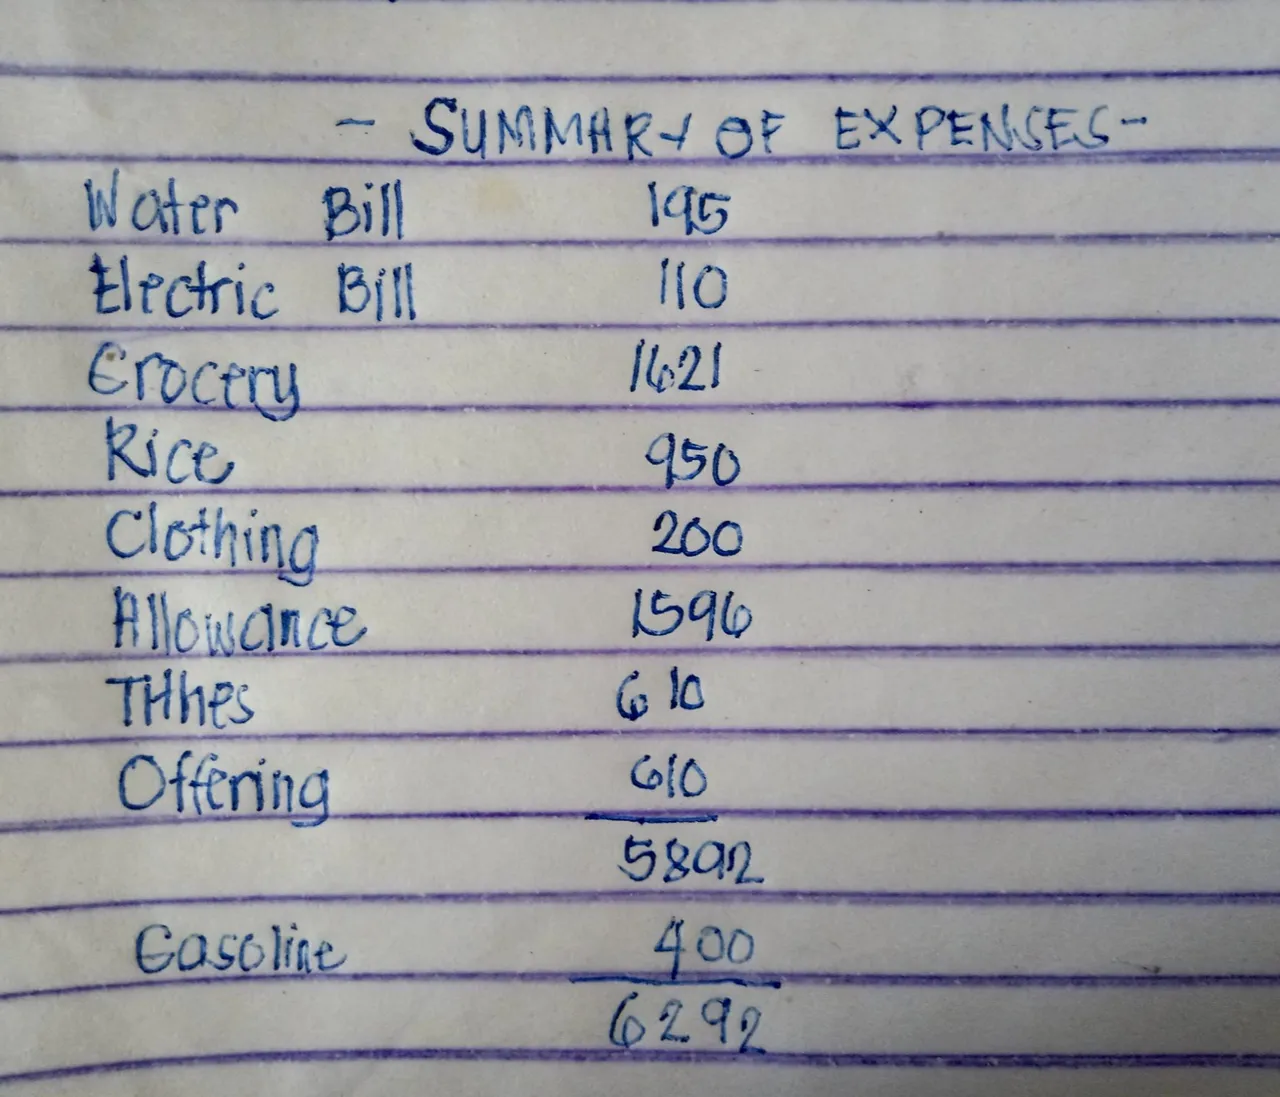 - SUMMARY OF EXPENSES-
Water Bill 195
Electric Bill 110
Grocery 1621
Rice 950
Clothing 200
Allowance 1596
Tithes 610
Offering 610
5892
Gasoline 400
6292